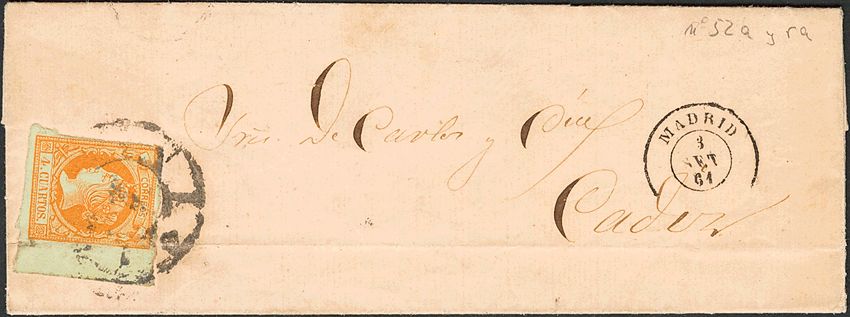 nº 52a y ra
Sres. De Carlos y Cía
Cadiz
MADRID
3
SET
61
CORREOS
4 CUARTOS